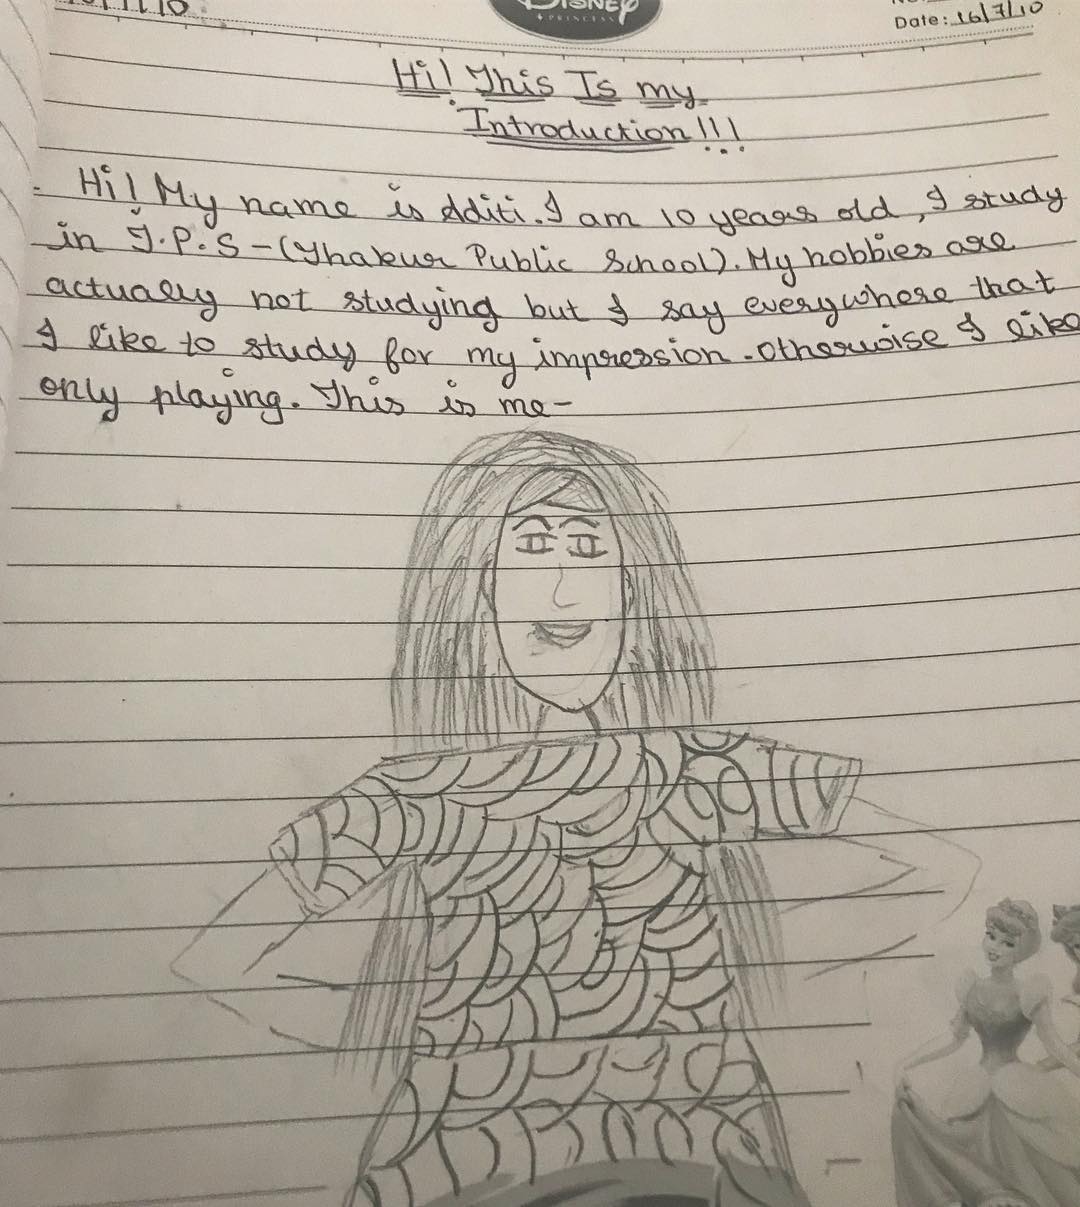 DISNEY
PRINCESS
Date: 16/7/10
Hi! This Is my
Introduction!!!
Hi! My name is Aditi. I am 10 years old, I study
in T.P.S - (Thakur Public School). My hobbies are
actually not studying but I say everywhere that
I like to study for my impression. Otherwise I like
only playing. This is me-